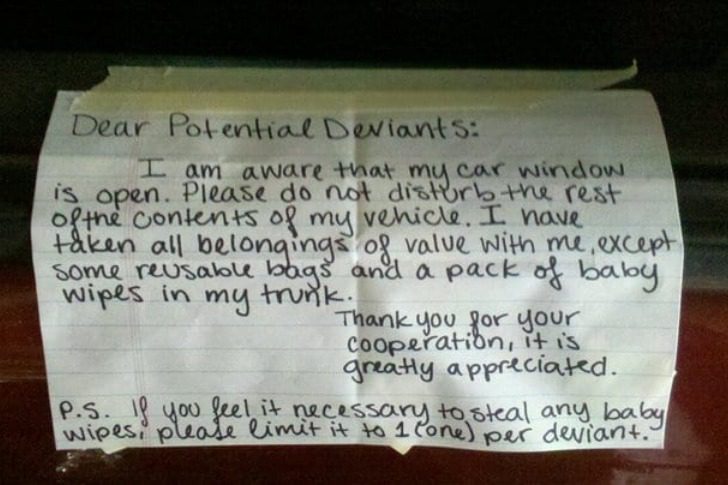 Dear Potential Deviants:
I am aware that my car window
is open. Please do not disturb the rest
of the contents of my vehicle. I have
taken all belongings of value with me, except
some reusable bags and a pack of baby
wipes in my trunk.
Thank you for your
cooperation, it is
greatly appreciated.
P.S. If you feel it necessary to steal any baby
wipes, please limit it to 1 (one) per deviant.